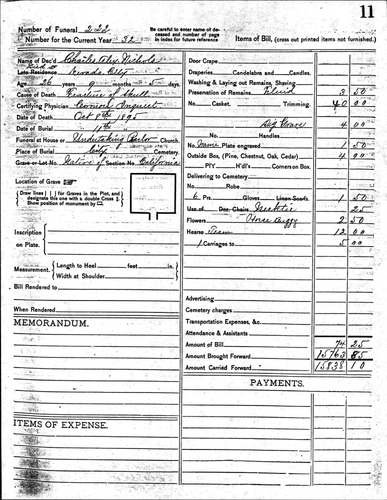 11
Number of Funeral 222
Number for the Current Year 32
Be careful to enter name of deceased and number of page in index for future reference
Name of Dec'd Charles Nichols
Late Residence Nevada City
Age 26
Cause of Death Fracture of Skull
Certifying Physician Coroner Inquest
Date of Death Oct 8th 1895
Date of Burial 10th
Funeral at House or Undertaking Parlor Church.
Place of Burial City Cemetery.
Grave or Lot No. Native of Section No. California
Location of Grave
Draw lines for Graves in the Plot, and designate this one with a double Cross
Show position of monument by
Inscription
on Plate.
Measurement.
Length to Heel feet in.
Width at Shoulder
Bill Rendered to
When Rendered
MEMORANDUM.
ITEMS OF EXPENSE.
Items of Bill, (cross out printed items not furnished.)
Door Crape
Draperies, Candelabra and Candles.
Washing & Laying out Remains, Shaving
Preservation of Remains Fluid 3 50
No. Casket, Trimming. 40 00
Dig Grave 4 00
No. Handles
No. Name Plate engraved 1 50
Outside Box, (Pine, Chestnut, Oak, Cedar) 4 00
No. Robe
6 Prs Gloves Linen Scarfs 1 50
Use of Doz. Chairs Necktie 25
Flowers Horse Buggy 2 50
Hearse Team 12 00
1 Carriages to 5 00
Advertising
Cemetery charges
Transportation Expenses, &c
Attendance & Assistants
Amount of Bill 74 25
Amount Brought Forward 15763 85
Amount Carried Forward 15838 10
PAYMENTS.